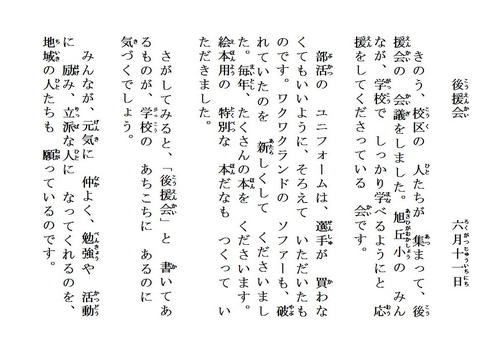 後援会　　　　　六月十一日
きのう、校区の　人たちが　集まって、後
援会の　会議をしました。旭丘小の　みん
なが、学校で　しっかり学べるようにと　応
援をしてくださっている　会です。
部活の　ユニフォームは、選手が　買わな
くてもいいように、そろえて　いただいたも
のです。ワクワクランドの　ソファーも、破
れていたのを　新しくして　くださいまし
た。毎年、たくさんの本を　くださいます。
絵本用の　特別な　本だなも　つくってい
ただきました。
さがしてみると、「後援会」と　書いてあ
るものが、学校の　あちこちに　あるのに
気づくでしょう。
みんなが、元気に　仲よく、勉強や　活動
に　励み、立派な人に　なってくれるのを、
地域の　人たちも　願っているのです。